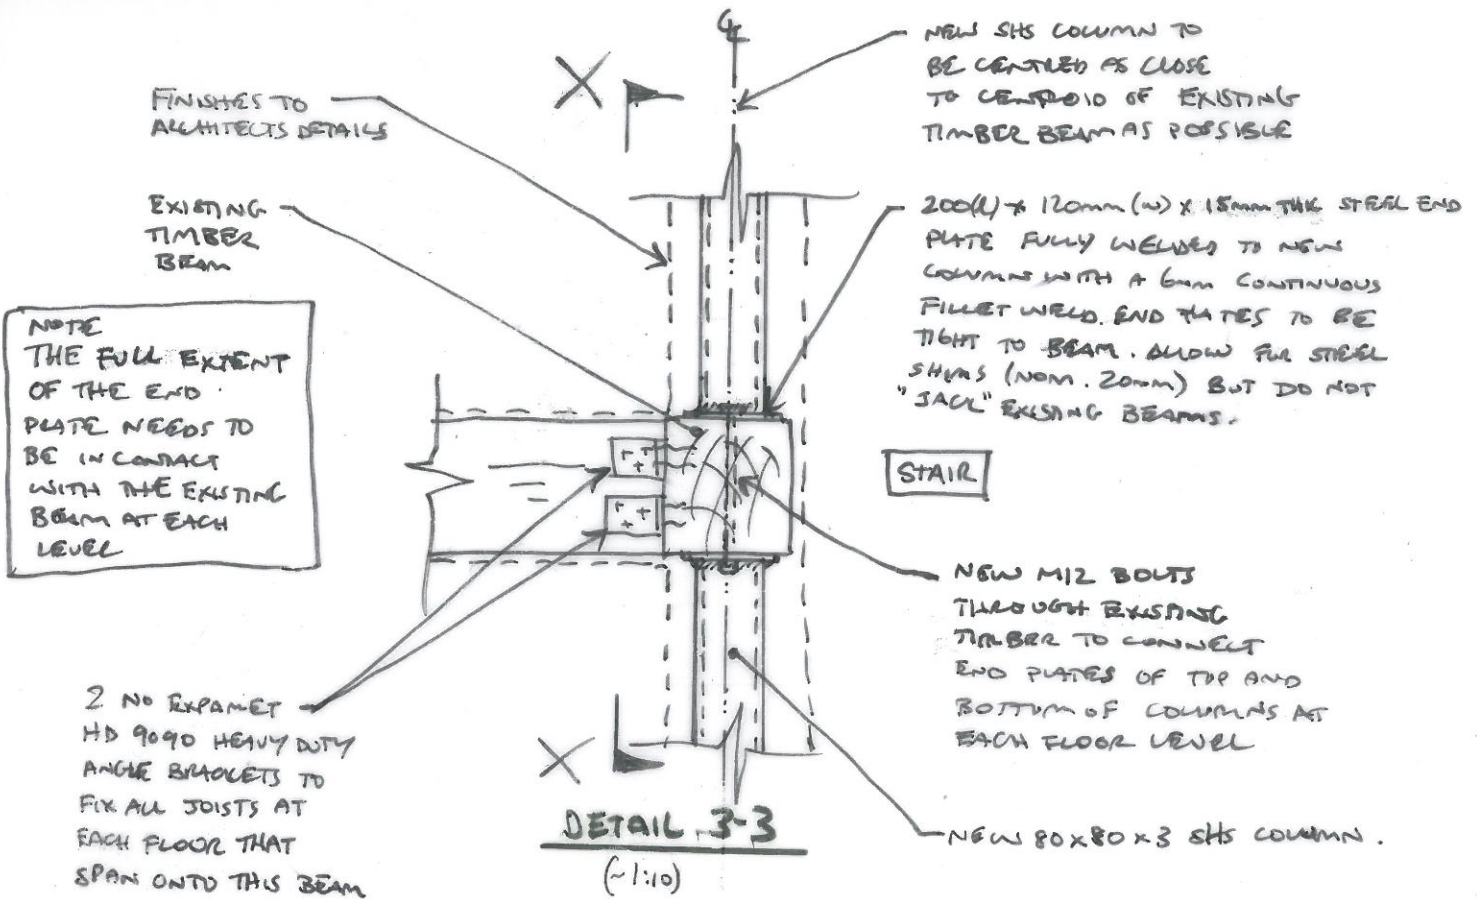 FINISHES TO
ARCHITECTS DETAILS
EXISTING
TIMBER
BEAM
NOTE
THE FULL EXTENT
OF THE END
PLATE NEEDS TO
BE IN CONTACT
WITH THE EXISTING
BEAM AT EACH
LEVEL
2 NO EXPAMET
HD 9090 HEAVY DUTY
ANGLE BRACKETS TO
FIX ALL JOISTS AT
EACH FLOOR THAT
SPAN ONTO THIS BEAM
CL
X
X
DETAIL 3-3
(~1:10)
NEW SHS COLUMN TO
BE CENTRED AS CLOSE
TO CENTROID OF EXISTING
TIMBER BEAM AS POSSIBLE
200(L) x 120mm (W) x 15mm THK STEEL END
PLATE FULLY WELDED TO NEW
COLUMNS WITH A 6mm CONTINUOUS
FILLET WELD. END PLATES TO BE
TIGHT TO BEAM. ALLOW FOR STEEL
SHIMS (NOM. 20mm) BUT DO NOT
"JACK" EXISTING BEAMS.
STAIR
NEW M12 BOLTS
THROUGH EXISTING
TIMBER TO CONNECT
END PLATES OF TOP AND
BOTTOM OF COLUMNS AT
EACH FLOOR LEVEL
NEW 80x80x3 SHS COLUMN.